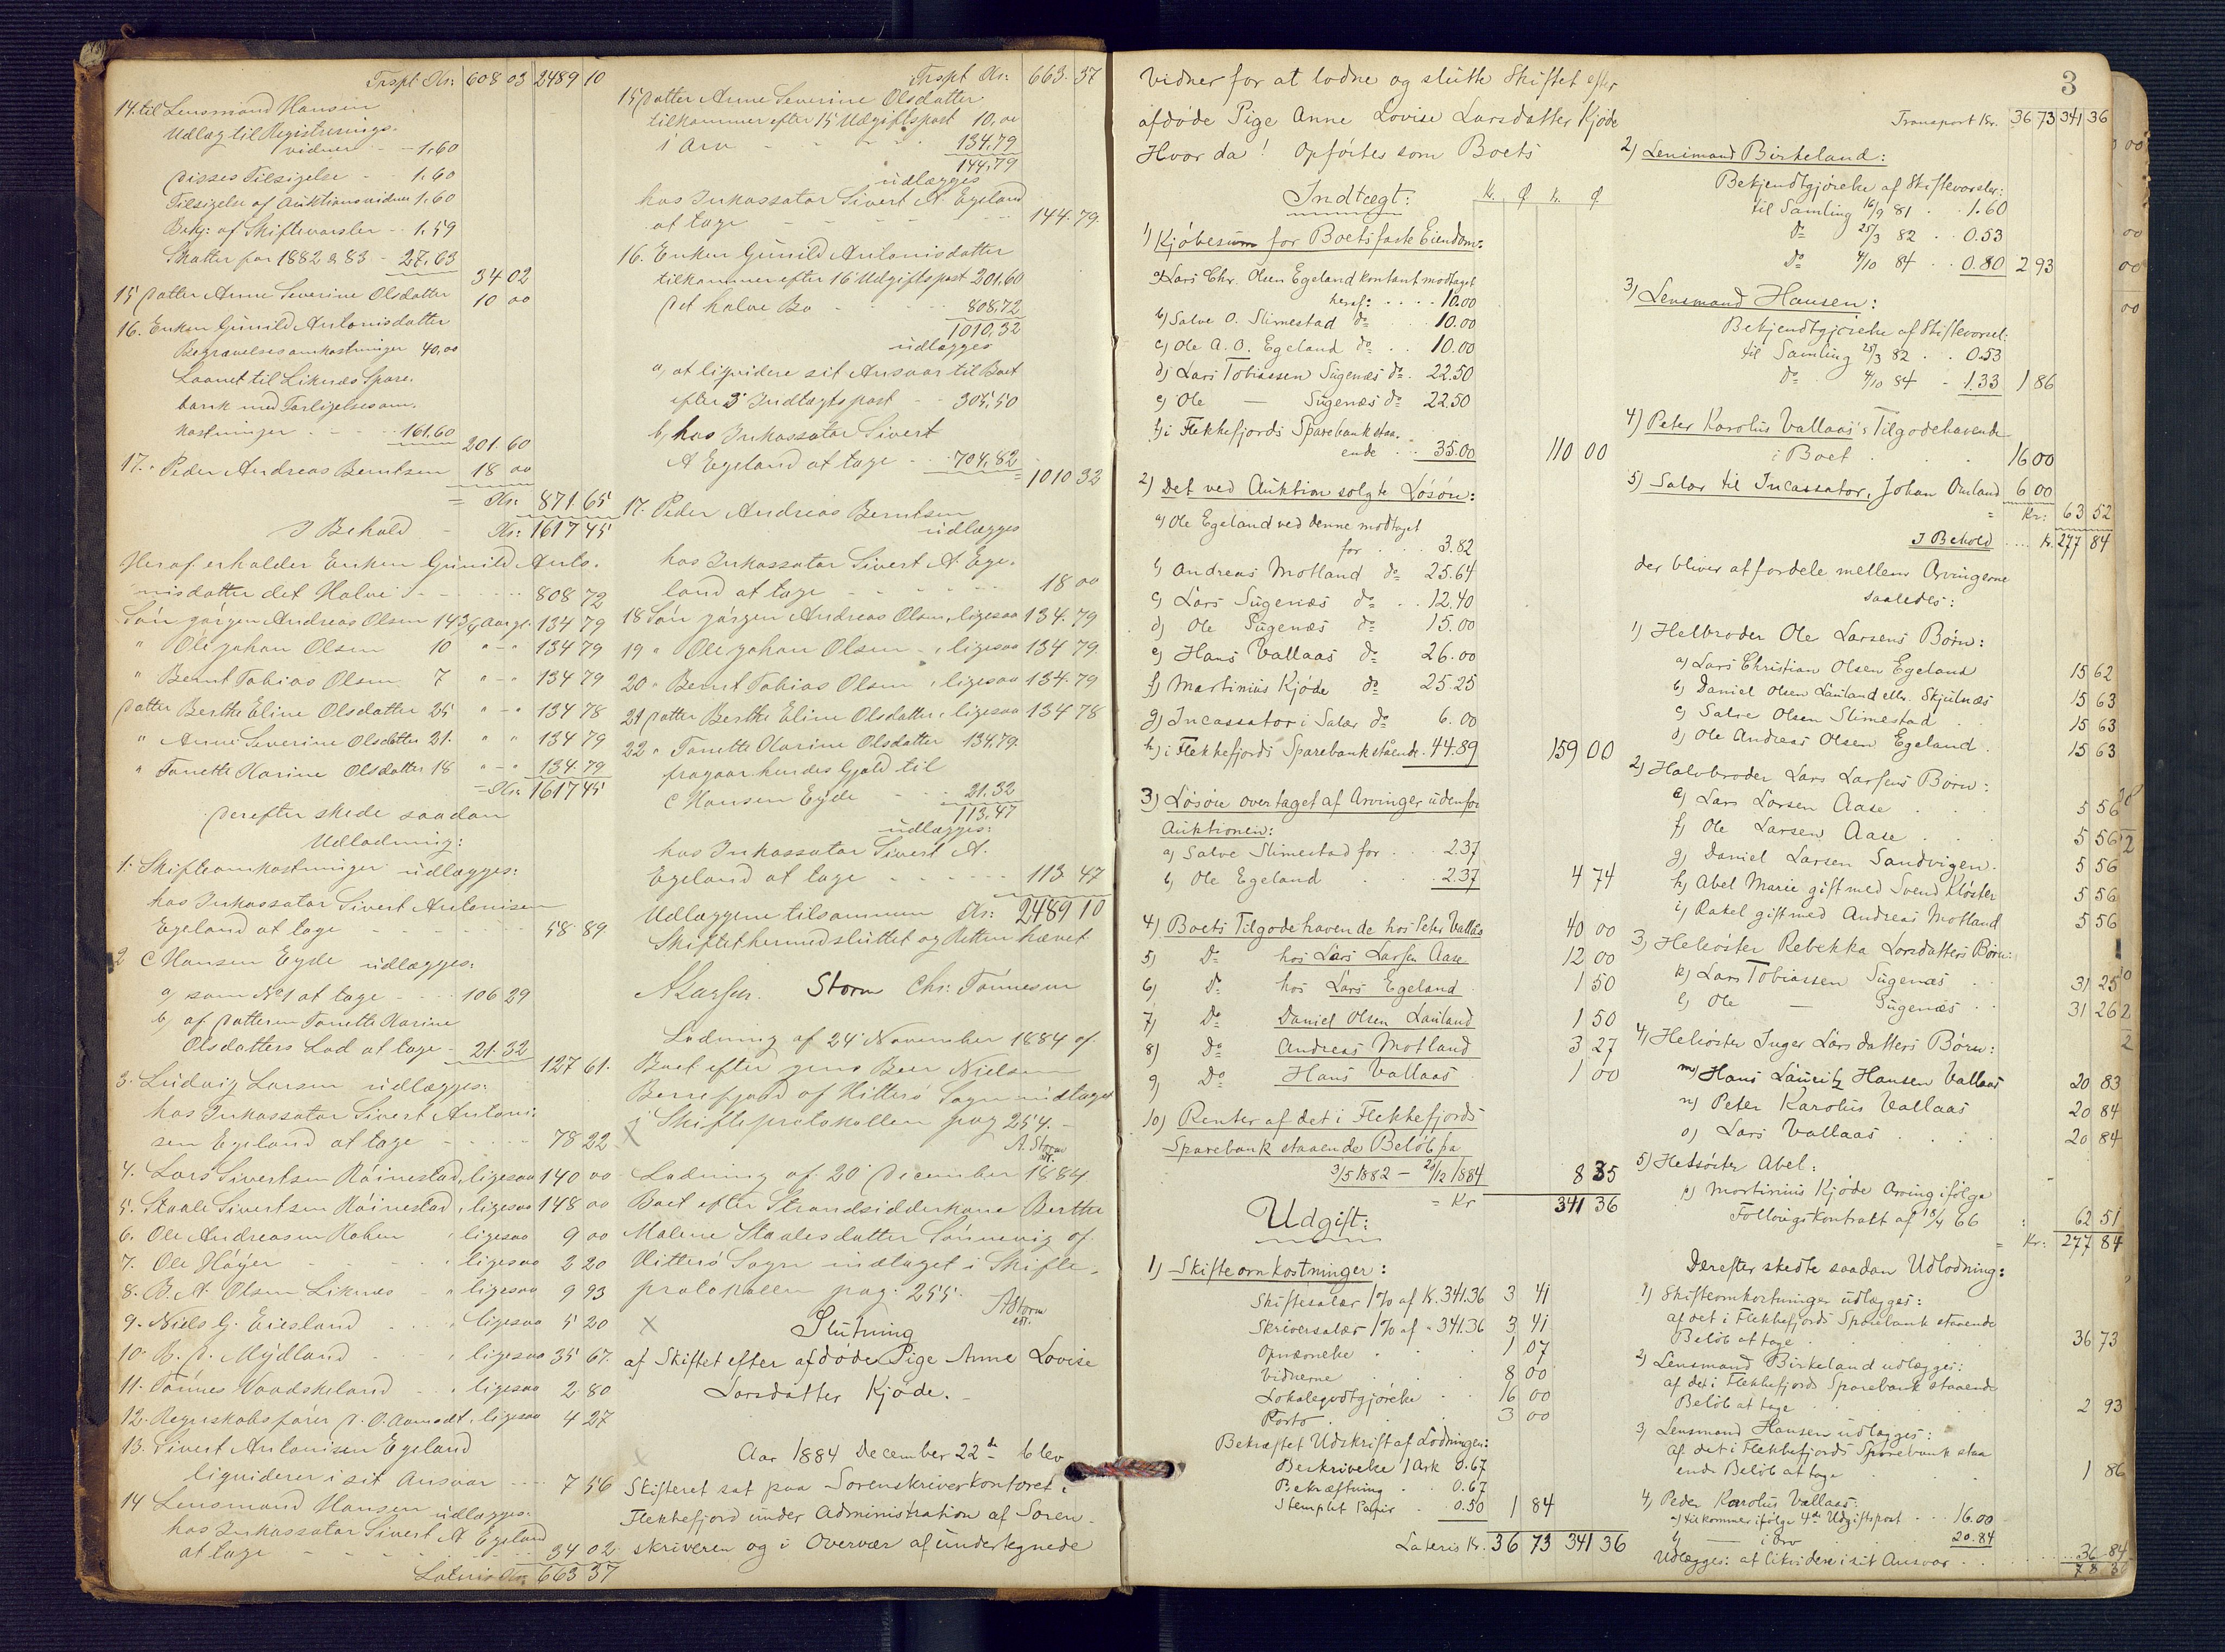 Trspt Kr: 608 03 2489 10
14. til Lensmand Hansen
Udlæg til Registrerings-
vidner - - 1,60
Disses Tilsigelse - 1.60
Tilsigelse af Auktionsvidner 1,60
Bekj: af Skiftevarsler - 1.59
Skatter for 1882 & 83 - 27,63
34 02
15 Datter Anne Severine Olsdatter 10 00
16. Enken Gunild Antonisdatter
Begravelsesomkostninger 40,00
Laanet til Liknæs Spare-
bank med Forligelsesom-
kostninger - - - 161,60
201. 60
17. Peder Andreas Berntsen 18 00
= Kr: 871 65
I Behold - Kr: 1617 45
Heraf erholder Enken Gunild Anto-
nisdatter det Halve - - - 808 72
Søn Jørgen Andreas Olsen 14 3/4 Aar gl. 134 79
" Ole Johan Olsen 10 " - " 134 79
" Bernt Tobias Olsen 7 " - " 134 79
Datter Berthe Eline Olsdatter 25 " - " 134 78
" Anne Severine Olsdatter 21. " " 134 79
" Tonette Karine Olsdatter 18 " - " 134. 79
= Kr: 1617 45
Derefter skede saadan
Udlodning:
1. Skifteomkostninger udlægges:
hos Inkassator Sivert Antonisen
Egeland at tage - - - 58 89
2 C Hansen Eyde udlægges:
a, som No 1 at tage - - 106 29
b, af Datteren Tonette Karine
Olsdatters Lod at tage - 21. 32
127 61.
3. Ludvig Larsen udlægges:
hos Inkassator Sivert Antoni-
sen Egeland at tage - - - 78 22
4. Lars Sivertsen Røinestad, ligesaa 140 00
5. Staale Sivertsen Røinestad, ligesaa 148 00
6. Ole Andreasen Haben, ligesaa 9 00
7. Ole Høyer - - - ligesaa 2 20
8. B. A. Olsen Liknæs - ligesaa 9 93
9. Niels G. Eiesland - - ligesaa 5 20
10. B. D. Mydland - - ligesaa 35 67.
11. Tønnes Vaadskeland - - ligesaa 2 80
12. Regnskabsfører D. O. Aamodt, ligesaa 4 27
13. Sivert Antonisen Egeland
liquiderer i sit Ansvar - - - 7 56
14 Lensmand Hansen udlægges:
hos Inkassator Sivert A Egeland
at tage - - - 34 02.
Lateris Kr: 663 37
Trspt Kr: 663. 37
15 Datter Anne Severine Olsdatter
tilkommer efter 15 Udgiftspost 10,00
i Arv - - - 134,79
144,79
udlægges
hos Inkassator Sivert A Egeland
at tage - - - 144. 79.
16. Enken Gunild Antonisdatter
tilkommer efter 16 Udgiftspost 201,60
Det halve Bo - - 808,72
1010,32
udlægges
a, at liquidere sit Ansvar til Boet
efter 3 Indtægtspost - - 305,50
b, hos Inkassator Sivert
A Egeland at tage - - 704,82
= 1010 32
17. Peder Andreas Berntsen
udlægges
hos Inkassator Sivert A Ege-
land at tage - - - 18 00
18 Søn Jørgen Andreas Olsen, ligesaa 134. 79
19 " Ole Johan Olsen - , ligesaa 134 79.
20 " Bernt Tobias Olsen, ligesaa 134. 79
21 Datter Berthe Eline Olsdatter, ligesaa 134 78
22 " Tonette Karine Olsdatter 134,79.
fragaar hendes Gjæld til
C Hansen Eyde - - - 21.32
113,47
udlægges:
hos Inkassator Sivert A.
Egeland at tage - - - 113 47
Udlæggene tilsammen Kr: 2489 10
Skiftet hermed sluttet og Retten hævet
Storm Chr. Tønnesen
Lodning af 24 November 1884 af
Boet efter Jens Beer Nielsen
af Hitterø Sogn indtaget
i Skifteprotokollen pag 254. -
A. Storm
est.
X
Lodning af 20 December 1884
Boet efter Strandsidderkone Berthe
Malene Staalesdatter Sønnevig af
Hitterø Sogn indtaget i Skifte-
protokollen pag. 255.
A Storm
est.
X
Slutning
af Skiftet efter afdøde Pige Anne Lovise
Larsdatter Kjøde. -
Aar 1884 December 22de blev
Skifteret sat paa Sorenskriverkontoret i
Flekkefjord under Administration af Soren-
skriveren og i Overvær af undertegnede
3
Vidner for at lodne og slutte Skiftet efter
afdøde Pige Anne Lovise Larsdatter Kjøde
Hvor da! Opførtes som Boets
Indtægt:
Kr. Ø Kr. Ø
1) Kjøbesum for Boets faste Eiendom:
a) Lars Chr. Olsen Egeland kontant modtaget
heraf: . . . . 10.00
b) Salve O. Slimestad do . 10.00
c) Ole A. O. Egeland do . . 10.00
d) Lars Tobiassen Sugenæs do . 22.50
e) Ole — Sugenæs do 22.50
f) i Flekkefjords Sparebank staa-
ende . . 35.00
110 00
2) Det ved Auktion solgte Løsøre:
a) Ole Egeland ved denne modtaget
for . . . 3.82
b) Andreas Motland do 25.64
c) Lars Sugenæs do . . 12.40
d) Ole Sugenæs do 15.00
e) Hans Vallaas do 26.00
f) Martinius Kjøde do 25.25
g) Incassator i Salær do 6.00
h) i Flekkefjords Sparebank stående . 44.89
159 00
3) Løsøre overtaget af Arvinger udenfor
Auktionen:
a) Salve Slimestad for . . 2.37
b) Ole Egeland . . . 2.37
4 74
4) Boets Tilgodehavende hos Peter Vallås 40 00
5) Do hos Lars Larsen Aase 12 00
6) Do hos Lars Egeland 1 50
7) Do Daniel Olsen Lauland 1 50
8) Do Andreas Motland 3 27
9) Do Hans Vallaas 1 00
10) Renter af det i Flekkefjords
Sparebank staaende Beløb fra
3/5 1882 - 20/12 1884 8 35
= Kr 341 36
Udgift:
1) Skifteomkostninger:
Skiftesalær 1 % af Kr. 341.36 3 41
Skriversalær 1 % af - 341.36 3 41
Opnævnelse . . . 1 07
Vidnerne . . . 8 00
Lokalegodtgjørelse . . 16 00
Porto . . . 3 00
Bekræftet Udskrift af Lodningen:
Beskrivelse 1 Ark 0.67
Bekræftning . . 0.67
Stemplet Papir . 0.50 1 84
Lateris Kr. 36 73 341 36
Transport Kr. 36 73 341 36
2) Lensmand Birkeland:
Bekjendtgjørelse af Skiftevarsler:
til Samling 16/9 81 . . 1.60
do 25/3 82 . . 0.53
Do 4/10 84 . . 0.80 2 93
3) Lensmand Hansen:
Bekjendtgjørelse af Skiftevarsel:
til Samling 25/3 82 . . 0.53
do 4/10 84 - 1.33 1 86
4) Peter Karolus Vallaas's Tilgodehavende
i Boet . . . 16 00
5) Salær til Incassator, Johan Omland 6 00
= Kr: 63 52
I Behold . . . . Kr. 277 84
der bliver at fordele mellem Arvingerne
saaledes:
1) Helbroder Ole Larsens Børn:
a) Lars Christian Olsen Egeland 15 62
b) Daniel Olsen Lauland eller Skjulnæs 15 63
c) Salve Olsen Slimestad . . 15 63
d) Ole Andreas Olsen Egeland . 15 63
2) Halvbroder Lars Larsens Børn:
e) Lars Larsen Aase . . 5 56
f) Ole Larsen Aase . . 5 56
g) Daniel Larsen Sandvigen . 5 56
h) Abel Marie gift med Svend Kloster 5 56
i) Rakel gift med Andreas Motland 5 56
3) Helsøster Rebekka Larsdatters Børn:
k) Lars Tobiassen Sugenæs . . 31 25
l) Ole — Sugenæs . . 31 26
4) Helsøster Inger Larsdatters Børn:
m) Hans Lauritz Hansen Vallaas 20 83
n) Peter Karolus Vallaas 20 84
o) Lars Vallaas . . . 20 84
5) Helsøster Abel:
p) Martinius Kjøde Arving ifølge
Follougskontrakt af 18/4 66 : 62 51
= Kr: 277 84
Derefter skedte saadan Udlodning:
1) Skifteomkostninger udlægges:
af det i Flekkefjords Sparebank staaende
Beløb at tage . . . 36 73
2) Lensmand Birkeland udlægges:
af det i Flekkefjords Sparebank staaende
Beløb at tage . . . 2 93
3) Lensmand Hansen udlægges:
af det i Flekkefjords Sparebank staa
ende Beløb at tage . . . 1 86
4) Peder Karolus Vallaas:
a) tilkommer ifølge 4de Udgiftspost . . . 16.00
b) — i Arv 20.84
Udlægges: at likvidere i sit Ansvar . . . 36 84
78 36